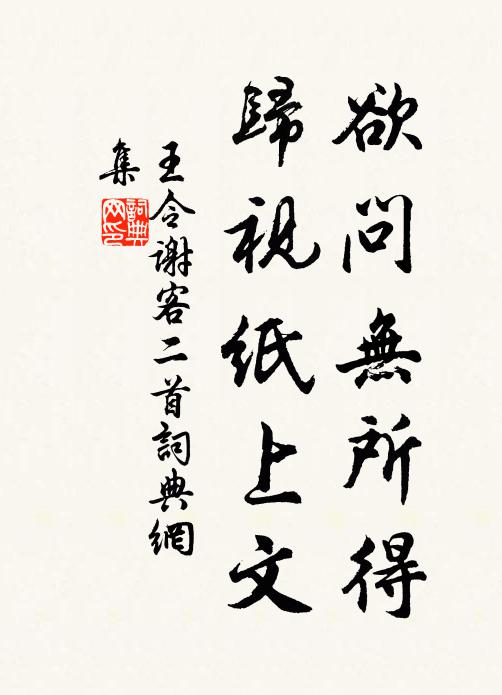 欲問無所得
歸視紙上文
王令謝客二首詞典網
集
詞典
网印